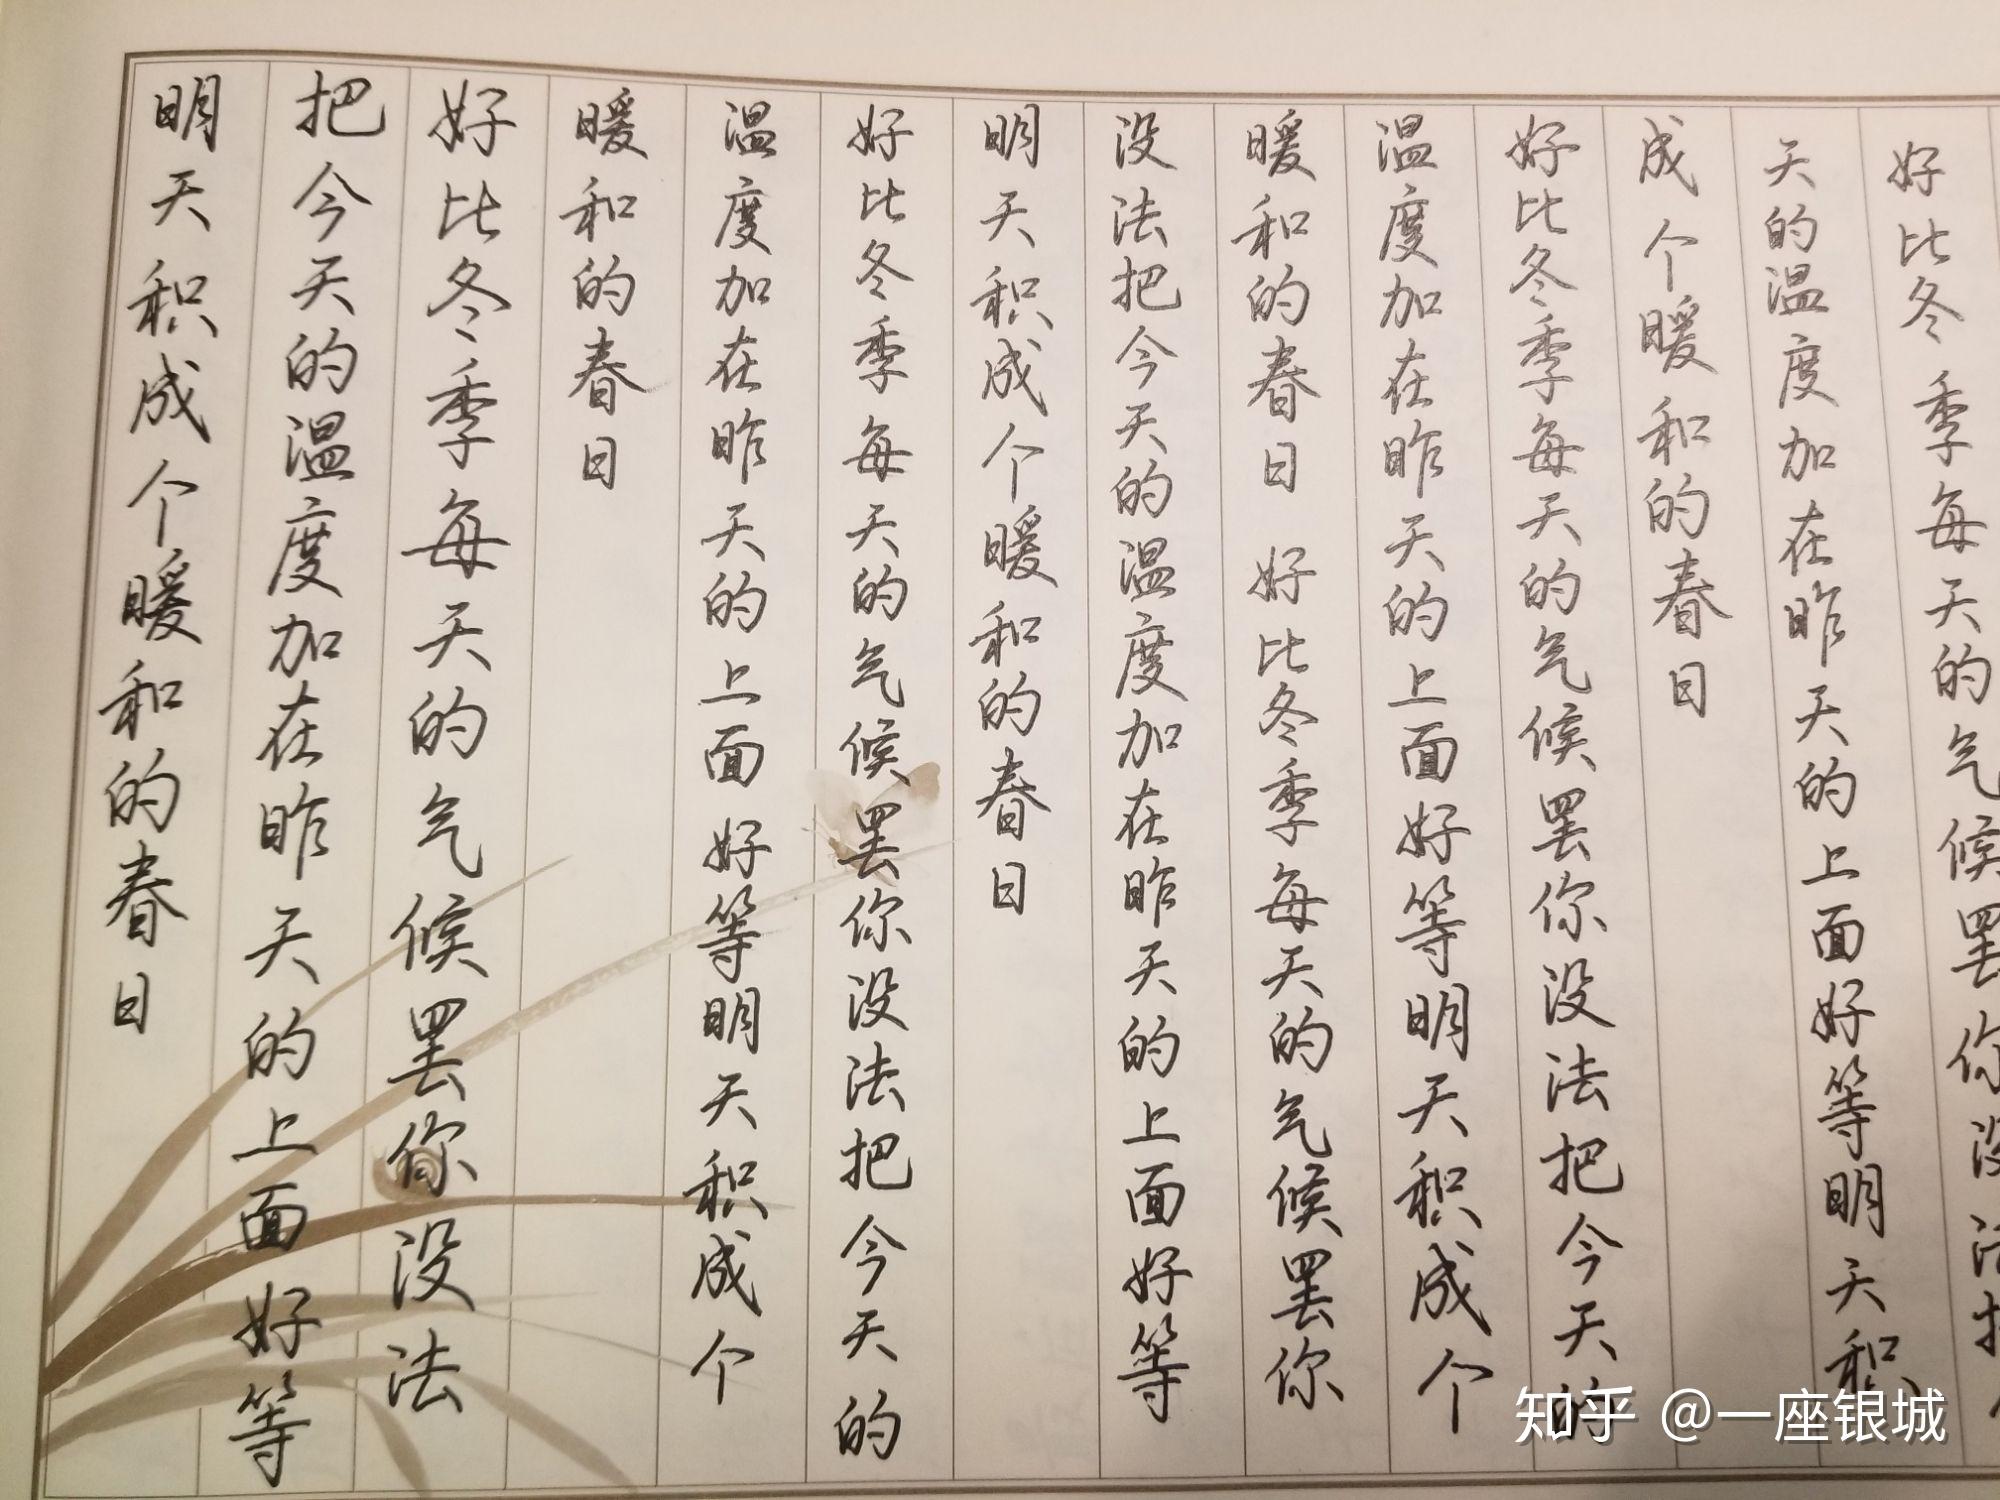 好比冬季每天的气候罢你没法
天的温度加在昨天的上面好等明天积
成个暖和的春日
好比冬季每天的气候罢你没法把今天的
温度加在昨天的上面好等明天积成个
暖和的春日 好比冬季每天的气候罢你
没法把今天的温度加在昨天的上面好等
明天积成个暖和的春日
好比冬季每天的气候罢你没法把今天的
温度加在昨天的上面好等明天积成个
暖和的春日
好比冬季每天的气候罢你没法
把今天的温度加在昨天的上面好等
明天积成个暖和的春日
知乎 @一座银城